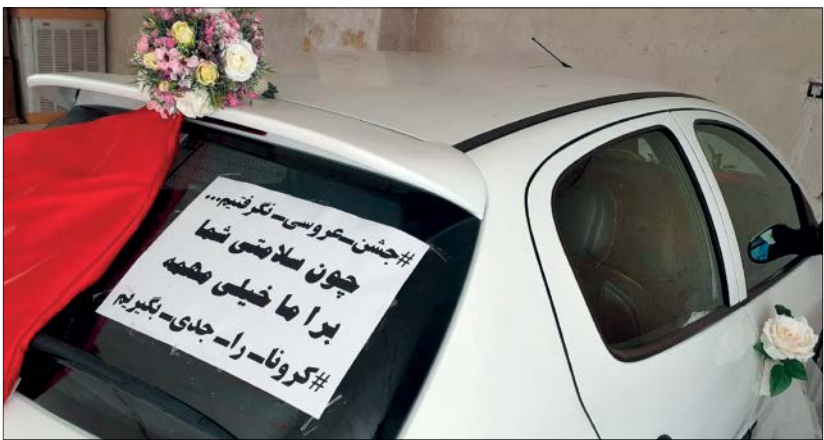 #جشن_عروسی_نگرفتیم...
چون سلامتی شما
برا ما خیلی مهمه
#کرونا_را_جدی_بگیریم